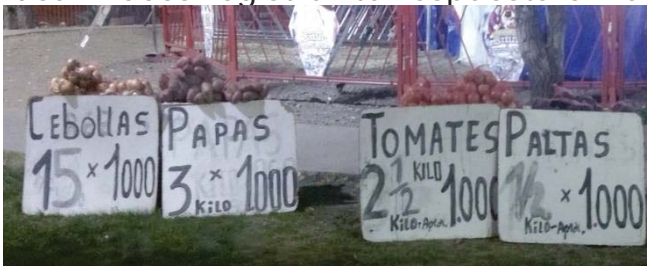 CEBOLLAS
15 x 1000
PAPAS
3 KILO x 1000
TOMATES
2 1/2 KILO 1.000
KILO-Aprox.
PALTAS
1/2 x 1.000
KILO-Aprox.